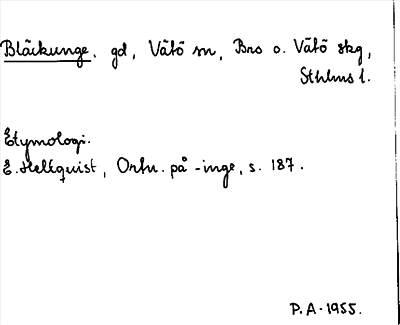 Bläckunge. gd, Vätö sn, Bro o. Vätö skg,
Sthlms l.
Etymologi.
E. Hellquist, Ortn. på -inge, s. 187.
P.A. 1955.